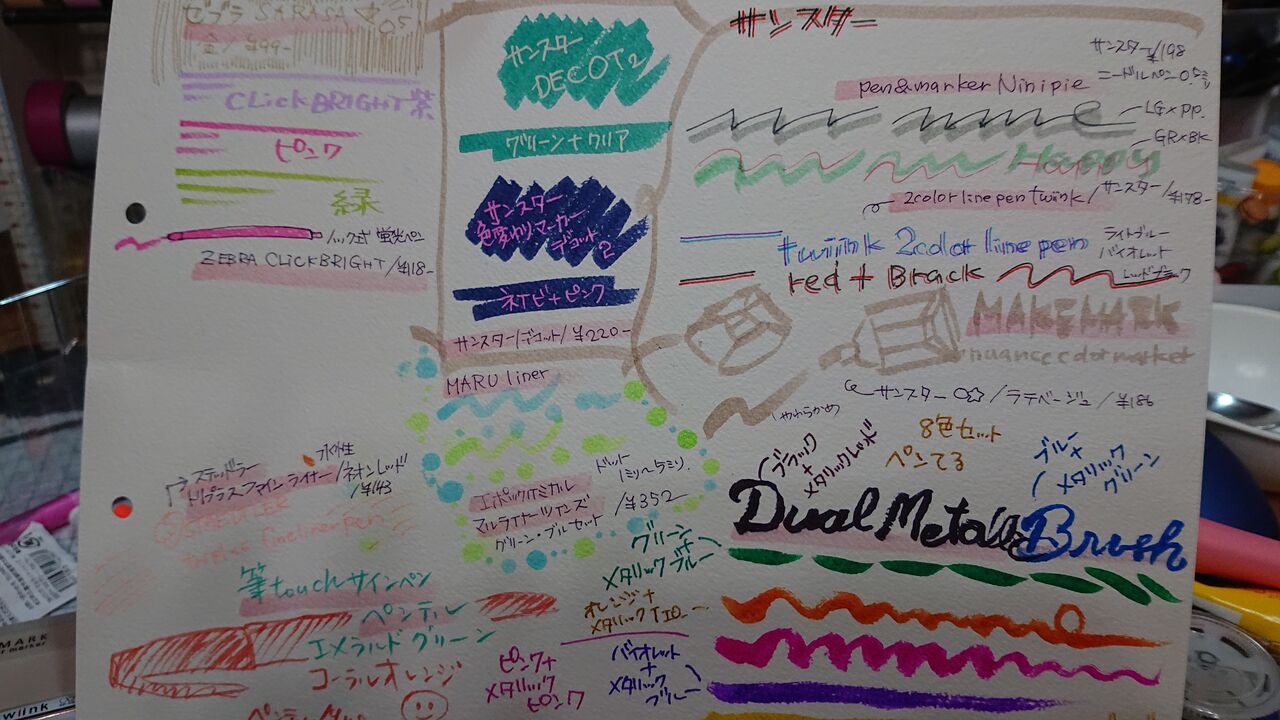 ゼブラ SARASA
0.5
金/¥99-
CLickBRIGHT紫
ピンク
緑
ノック式蛍光ペン
ZEBRA CLickBRIGHT/¥118-
サンスター
DECOT2
グリーン+クリア
サンスター
色変わりマーカー
デコット
2
ネイビ+ピンク
サンスター/デコット/¥220-
サンスター
サンスター¥198
pen&marker Ninipie
ニードルペン0.5ミリ
LG×PP.
GR×BK
Happy
2color line pen twink/サンスター/¥178-
twiink 2color line pen
ライトブルー
バイオレット
red + Brack
レッドブラック
MAKEMARK
nuance dot market
サンスター/ラテベージュ/¥186
やわらかめ
MARU liner
ドット
1ミリ〜5ミリ.
エポックケミカル
マルライナーツインズ
グリーン・ブルセット
/¥352-
ステッドラー
水性
トリプラスファインライナー/ネオンレッド
/¥143
STAEDTLER
fineliner pen
筆touchサインペン
ペンテル
エメラルドグリーン
コーラルオレンジ
8色セット
ペンてる
ブラック
+
メタリックレッド
ブルー
+
メタリック
グリーン
Dual Metallic Brush
グリーン
+
メタリックブルー
オレンジ+
メタリックイエロー
ピンク+
メタリック
ピンク
バイオレット
+
メタリック
ブルー
MARK
wiink